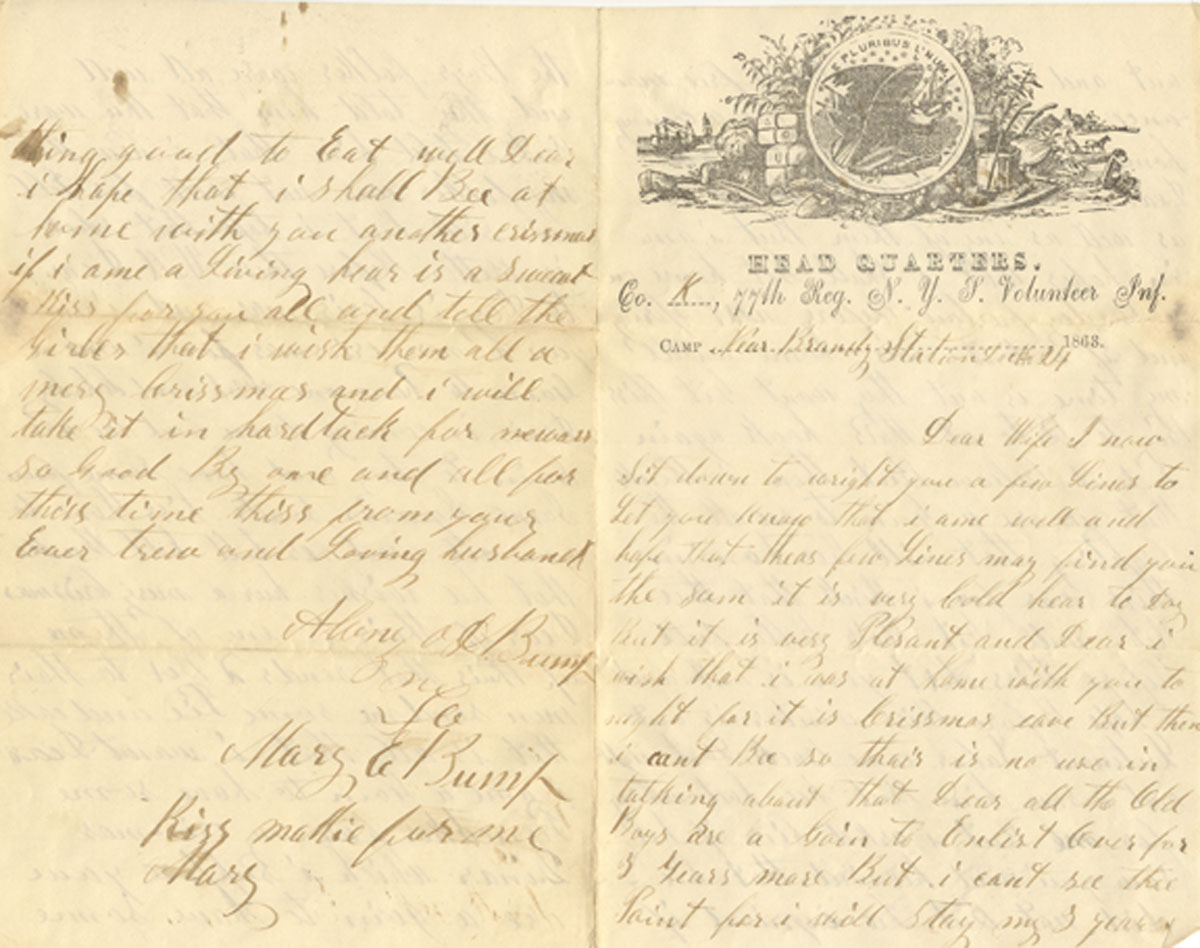 E PLURIBUS UNUM
HEAD QUARTERS.
Co. K, 77th Reg. N. Y. S. Volunteer Inf.
CAMP Near Brandy Station 24 1863.
Dear Wife I now
Sit down to wright you a few Lines to
Let you know that i ame well and
hope that theas few Lines may find you
the sam it is very Cold hear to Day
But it is very Plesant and Dear i
wish that i was at home with you to
night for it is Crissmas eave But then
i cant Bee so thair is no use in
talking about that Dear all the Old
Boys are a Goin to Enlist Over for
3 Years more But i cant see thee
Point for i will stay my 3 years
thing good to Eat well Dear
i hope that i shall Bee at
home with you another crissmas
if i ame a Living hear is a Sweat
Kiss for you all and tell the
Girles that i wish them all a
mery Crissmas and i will
take it in hardtack for
so Good By one and all for
thiss time thiss from your
Ever trew and Loving husband
Alonzo D Bump
To
Mary E Bump
Kiss mattie for me
Mary